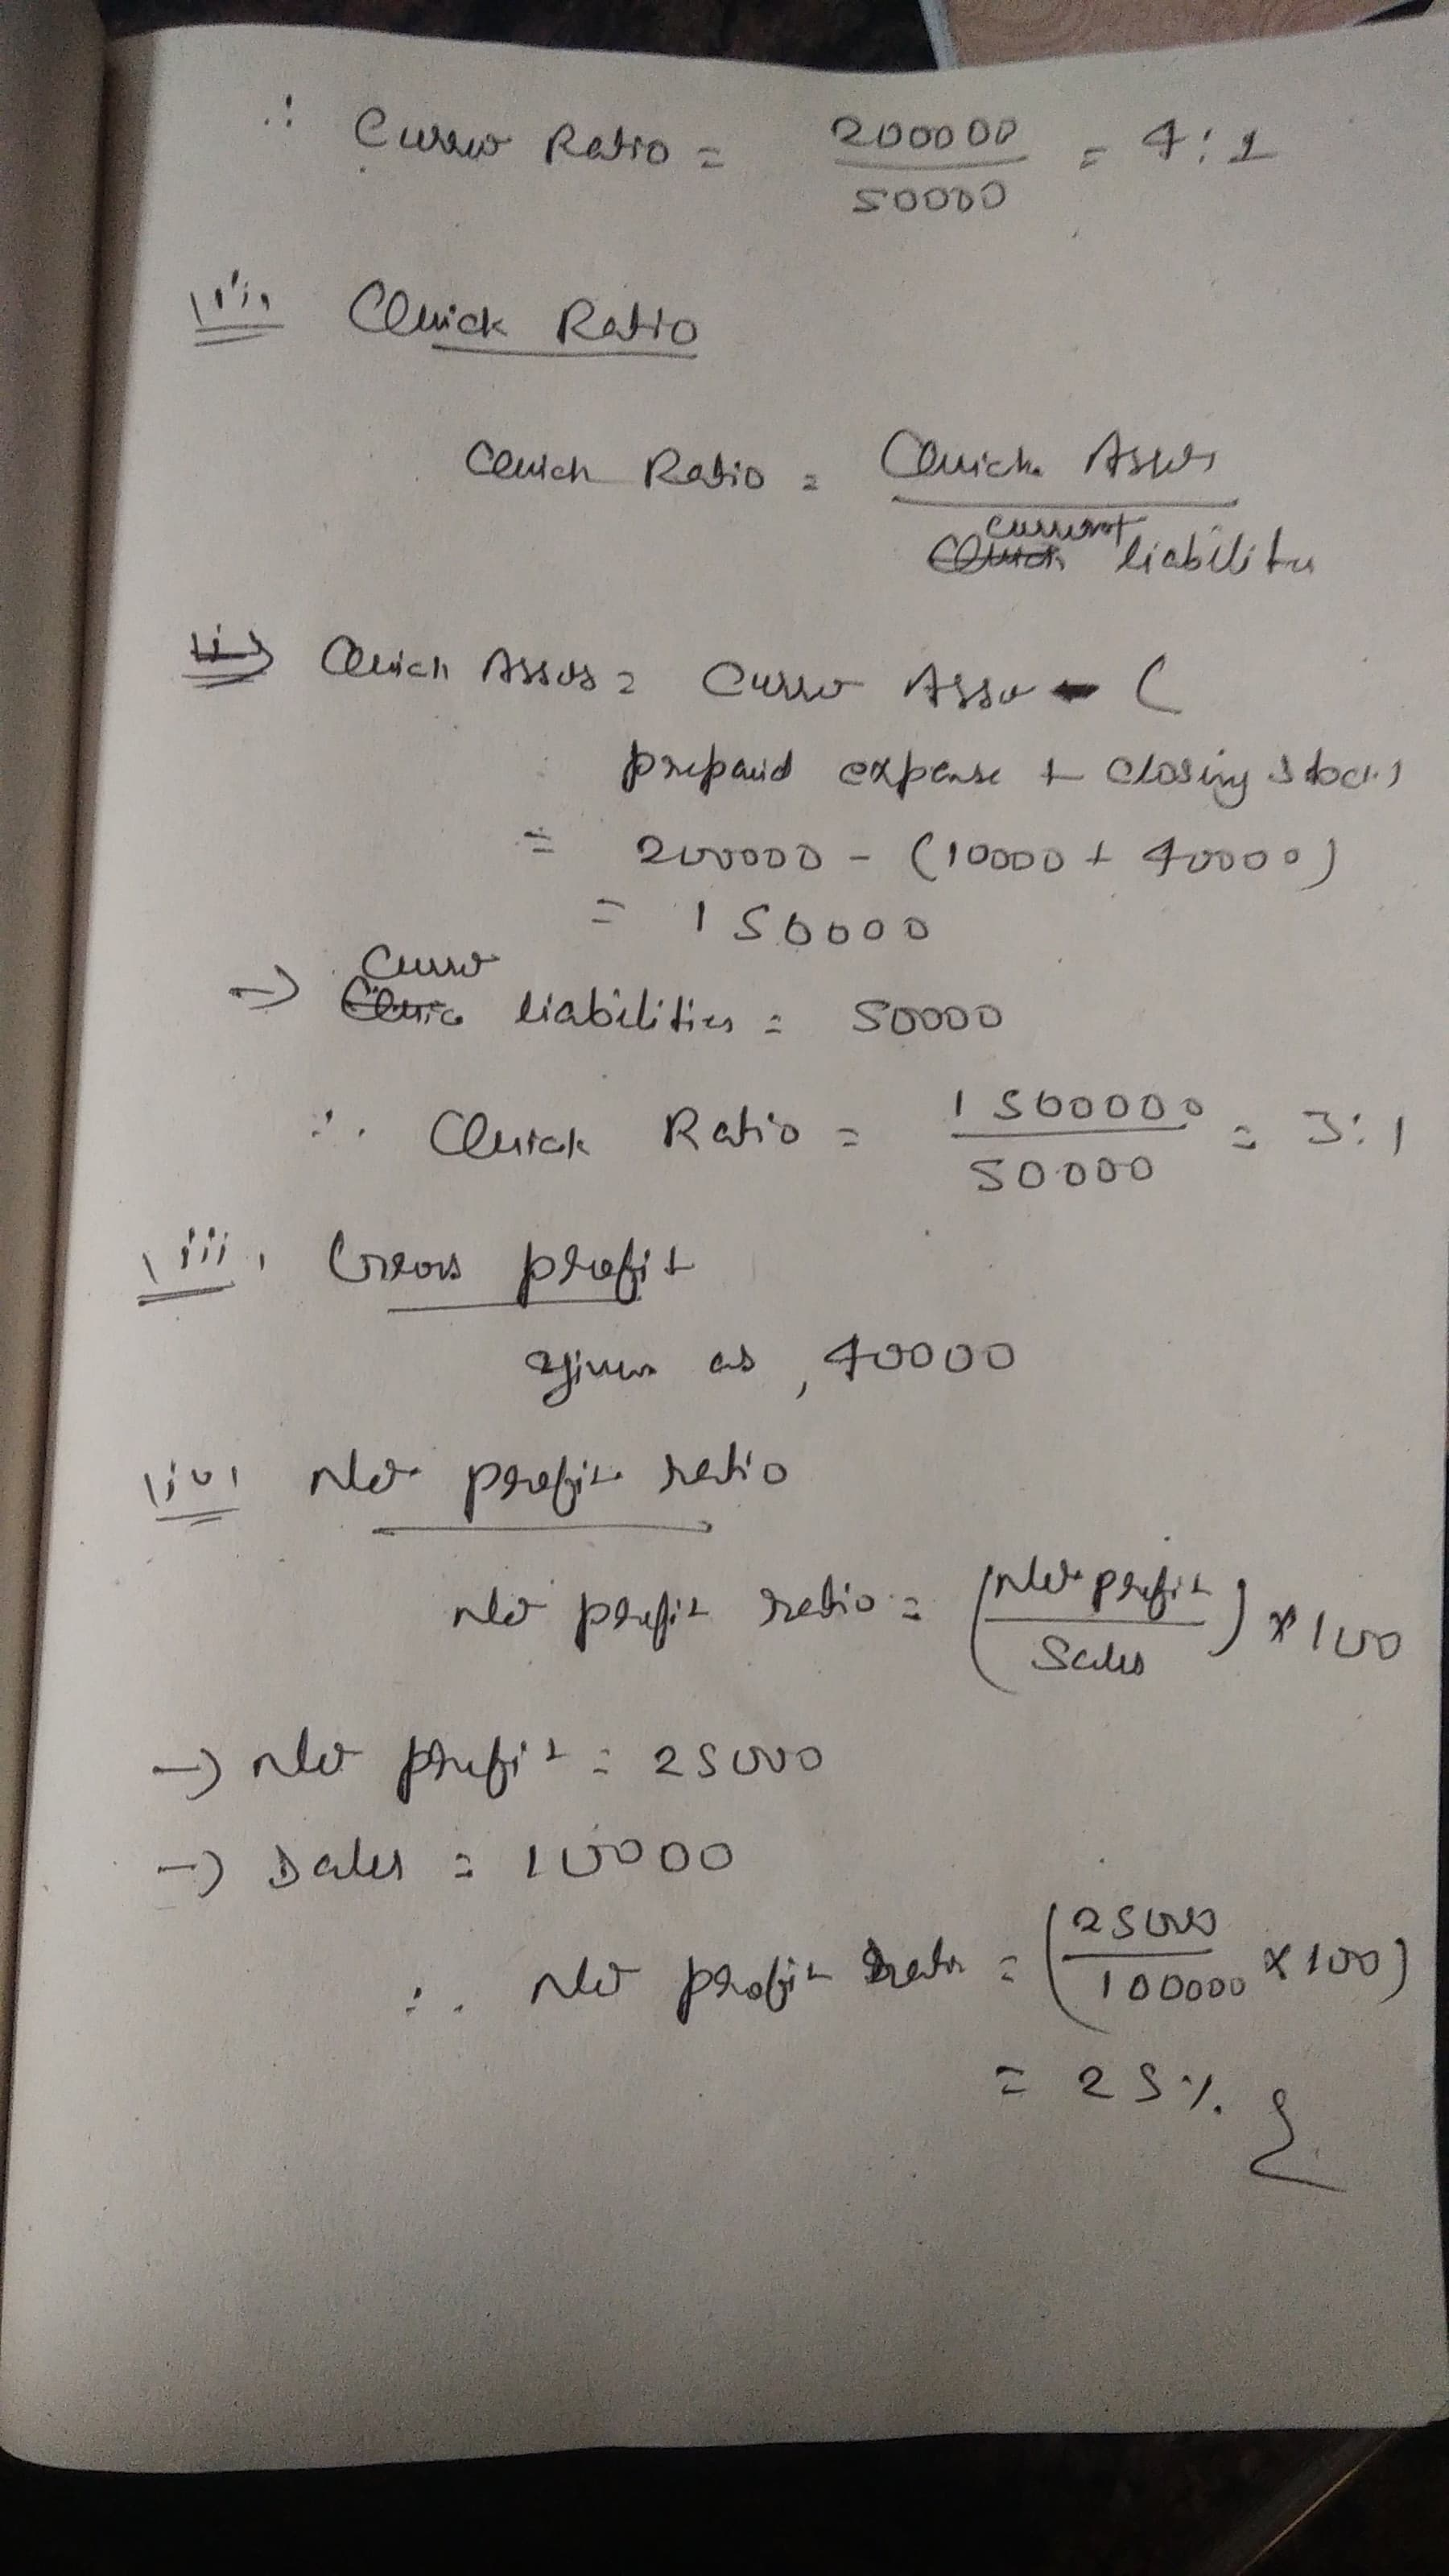 ∴ Current Ratio = 200000 / 50000 = 4:1
(ii) Quick Ratio
Quick Ratio = Quick Assets / current liabilities
Quick Assets = Current Assets - (
prepaid expense + closing stock)
= 200000 - (10000 + 40000)
= 150000
→ Current liabilities = 50000
∴ Quick Ratio = 1500000 / 50000 = 3:1
(iii) Gross profit
given as, 40000
(iv) Net profit ratio
Net profit ratio = (Net profit / Sales) × 100
→ Net profit = 25000
→ Sales = 10000
∴ Net profit ratio = (25000 / 100000 × 100)
= 25%